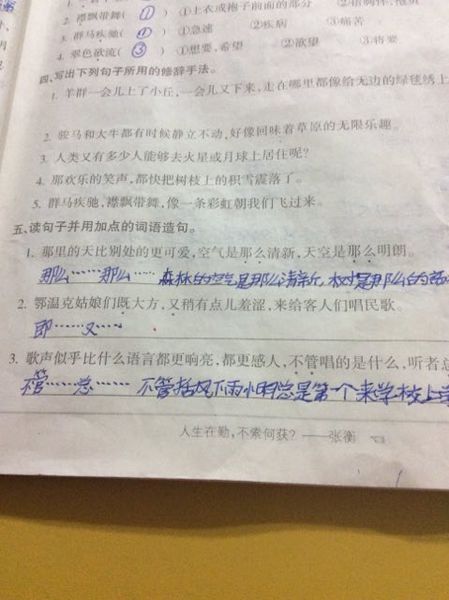 2. 襟飘带舞( ① ) ①上衣或袍子前面的部分
3. 群马疾驰( ① ) ①急速 ②疾病 ③痛苦
4. 翠色欲流( ③ ) ①想要,希望 ②欲望 ③将要
四、写出下列句子所用的修辞手法。
1. 羊群一会儿上了小丘,一会儿又下来,走在哪里都像给无边的绿毯绣上
2. 骏马和大牛都有时候静立不动,好像回味着草原的无限乐趣。
3. 人类又有多少人能够去火星或月球上居住呢?
4. 那欢乐的笑声,都快把树枝上的积雪震落了。
5. 群马疾驰,襟飘带舞,像一条彩虹朝我们飞过来。
五、读句子并用加点的词语造句。
1. 那里的天比别处的更可爱,空气是那么清新,天空是那么明朗。
那么……那么…… 森林的空气是那么清新,树是那么的
2. 鄂温克姑娘们既大方,又稍有点儿羞涩,来给客人们唱民歌。
即……又……
3. 歌声似乎比什么语言都更响亮,都更感人,不管唱的是什么,听者总
不管……总…… 不管括风下雨小明总是第一个来学校上学
人生在勤,不索何获? ——张衡